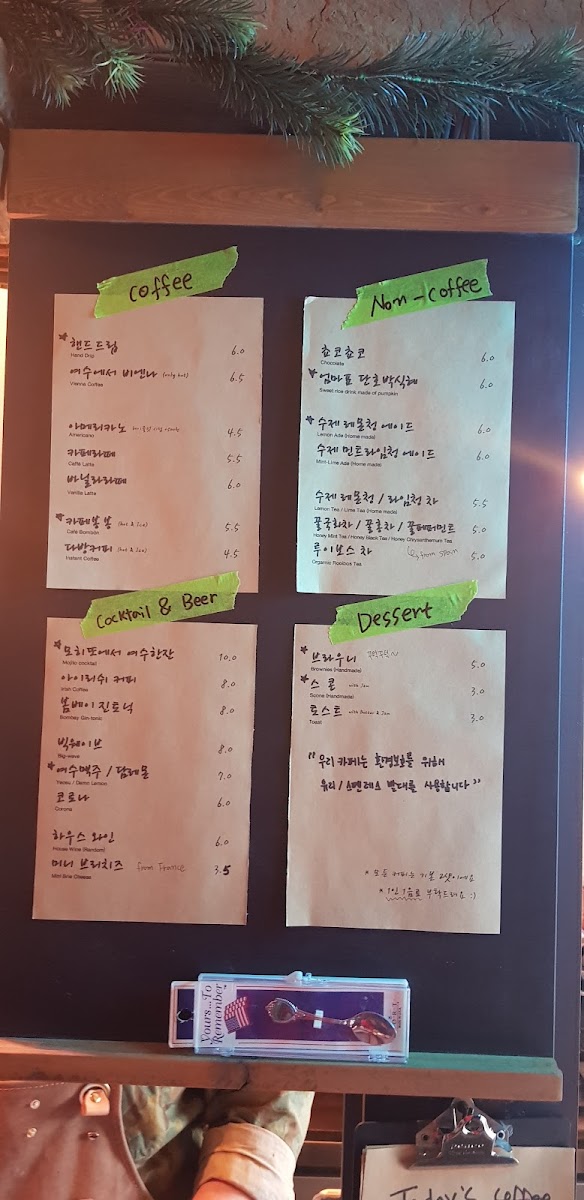 Coffee
* 핸드드립 6.0
Hand Drip
여수에서 비엔나 (only hot) 6.5
Vienna Coffee
아메리카노 4.5
Americano
카페라떼 5.5
Caffe Latte
바닐라라떼 6.0
Vanilla Latte
* 카페봉봉 (Hot & Ice) 5.5
Cafe Bombon
다방커피 (Hot & Ice) 4.5
Instant Coffee
Non-Coffee
쵸코쵸코 6.0
Chocolate
* 엄마표 단호박식혜 6.0
Sweet rice drink made of pumpkin
* 수제 레몬청 에이드 6.0
Lemon Ade (Home made)
수제 민트라임청 에이드 6.0
Mint-Lime Ade (Home made)
수제 레몬청 / 라임청 차 5.5
Lemon Tea / Lime Tea (Home made)
꿀국화차 / 꿀홍차 / 꿀페퍼민트 5.0
Honey Mint Tea / Honey Black Tea / Honey Chrysanthemum Tea
루이보스 차 from Spain 5.0
Organic Rooibos Tea
Cocktail & Beer
* 모히또에서 여수한잔 10.0
Mojito cocktail
아이리쉬 커피 8.0
Irish Coffee
봄베이 진토닉 8.0
Bombay Gin-tonic
빅웨이브 8.0
Big-wave
* 여수맥주 / 담레몬 7.0
Yeosu / Demn Lemon
코로나 6.0
Corona
하우스 와인 6.0
House Wine (Random)
미니 브리치즈 from France 3.5
Mini Brie Cheese
Dessert
* 브라우니 5.0
Brownies (Handmade)
* 스콘 with Jam 3.0
Scone (Handmade)
토스트 with Butter & Jam 3.0
Toast
"우리 카페는 환경보호를 위해
유리 / 스텐레스 빨대를 사용합니다"
* 모든 커피는 기본 2샷이에요
* 1인 1음료 부탁드려요 :)
Yours...To
Remember
Today's Coffee